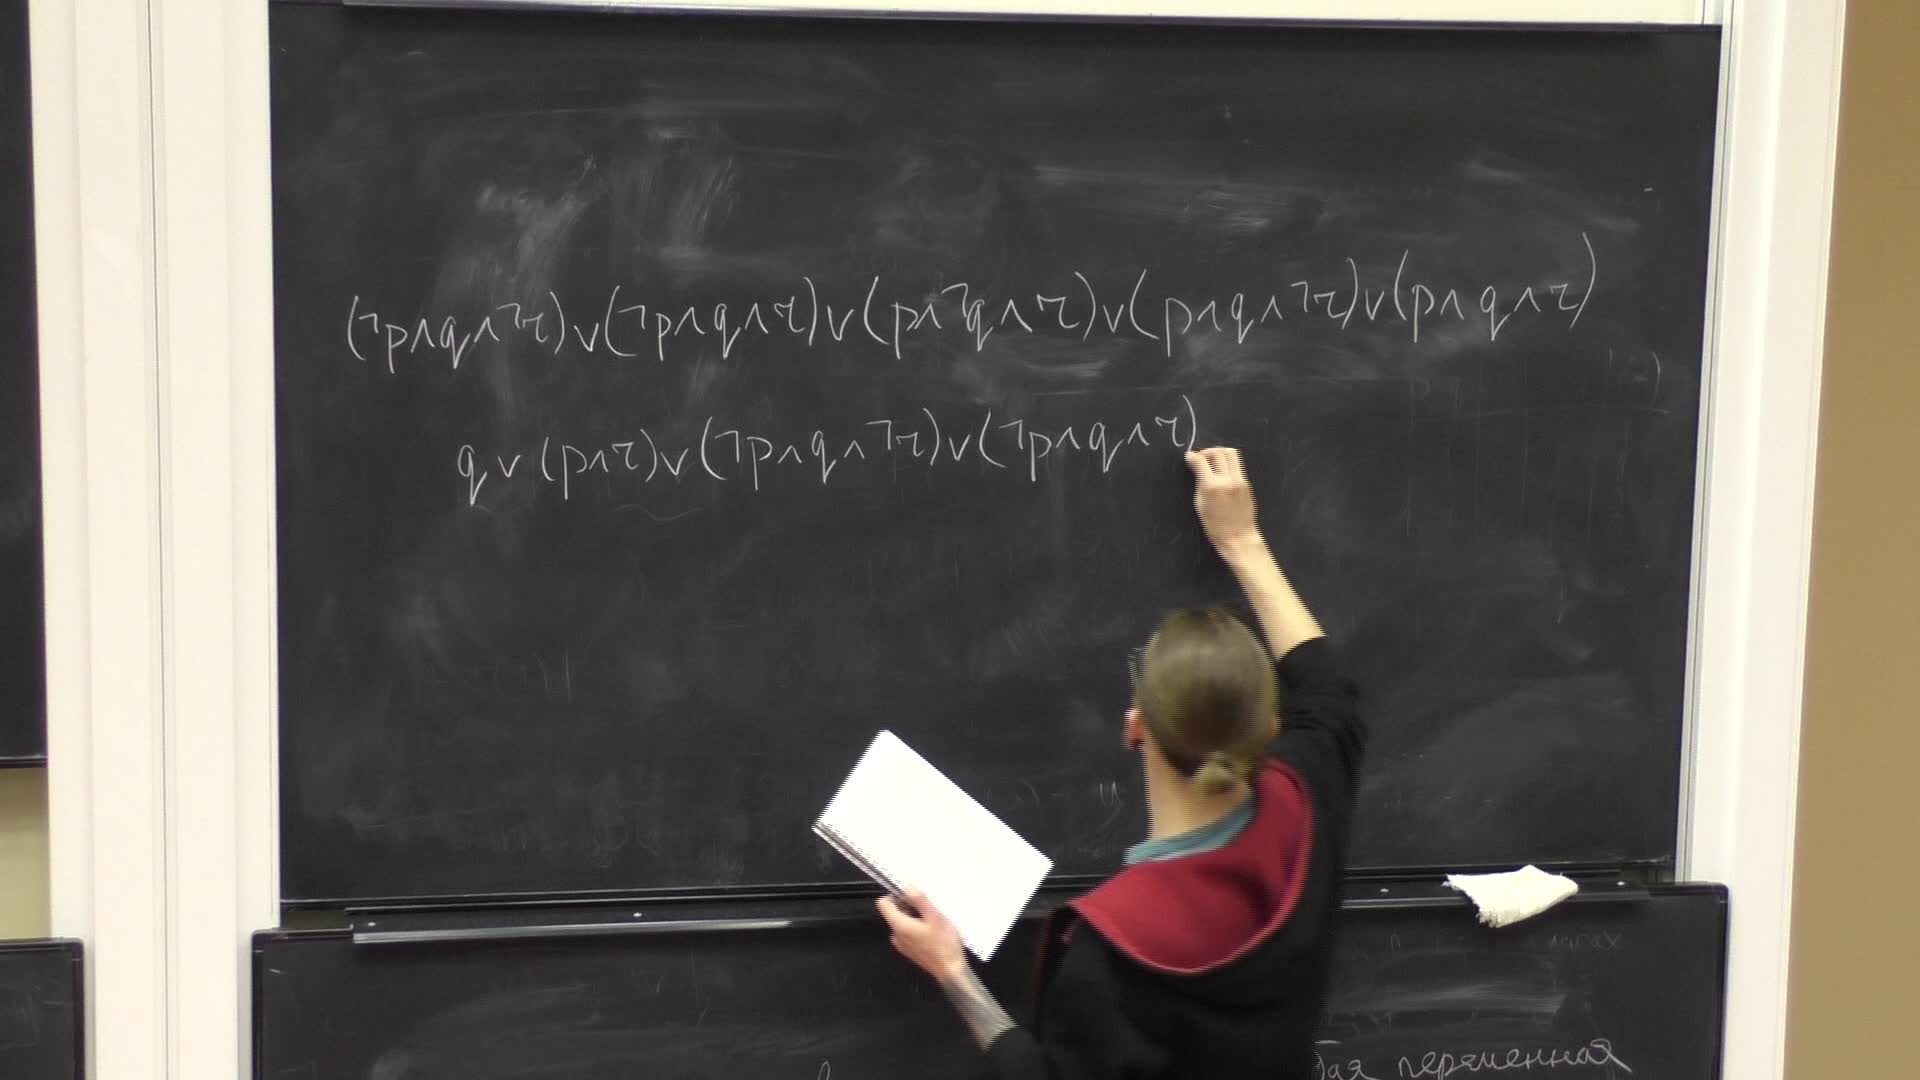 (¬p∧q∧¬r)∨(¬p∧q∧r)∨(p∧¬q∧r)∨(p∧q∧¬r)∨(p∧q∧r)
q∨(p∧r)∨(¬p∧q∧¬r)∨(¬p∧q∧r)
переменная